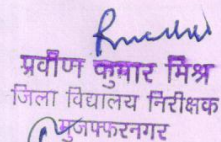 प्रवीण कुमार मिश्र
जिला विद्यालय निरीक्षक
मुजफ्फरनगर